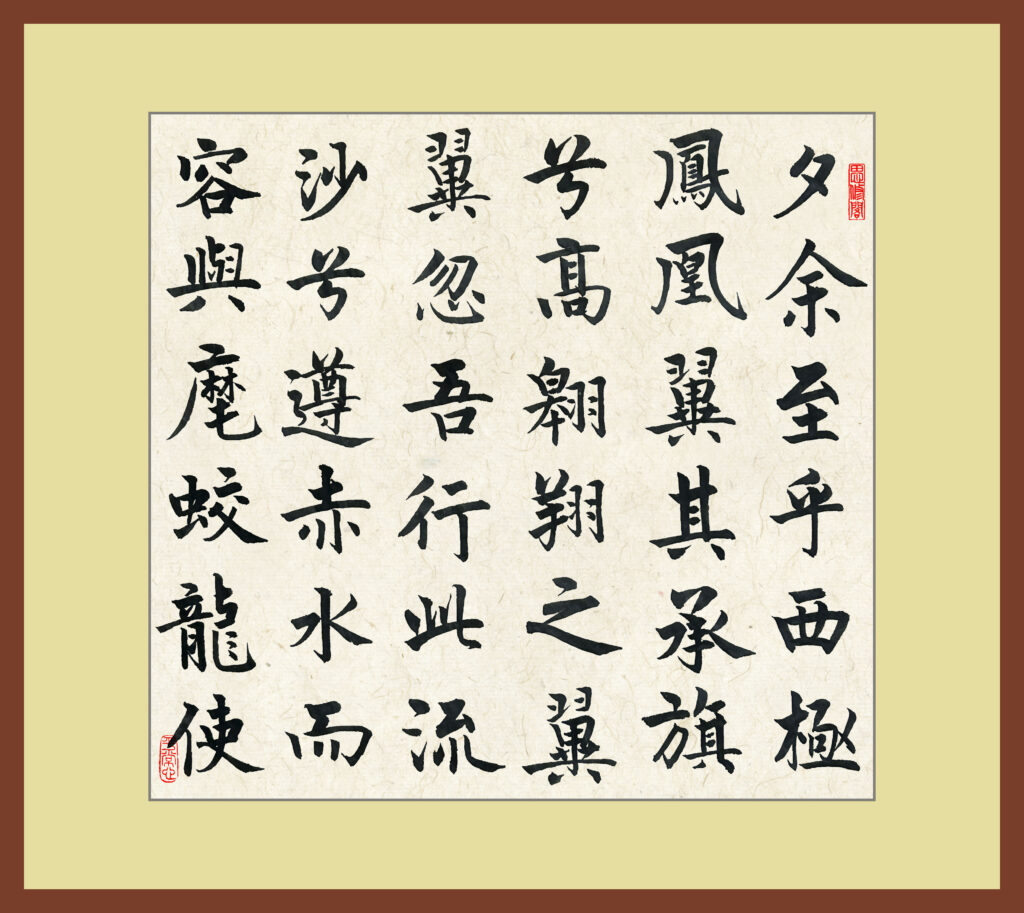 思修閣
夕余至乎西極
鳳凰翼其承旗
兮髙翱翔之翼
翼忽吾行此流
沙兮遵赤水而
容與麾蛟龍使